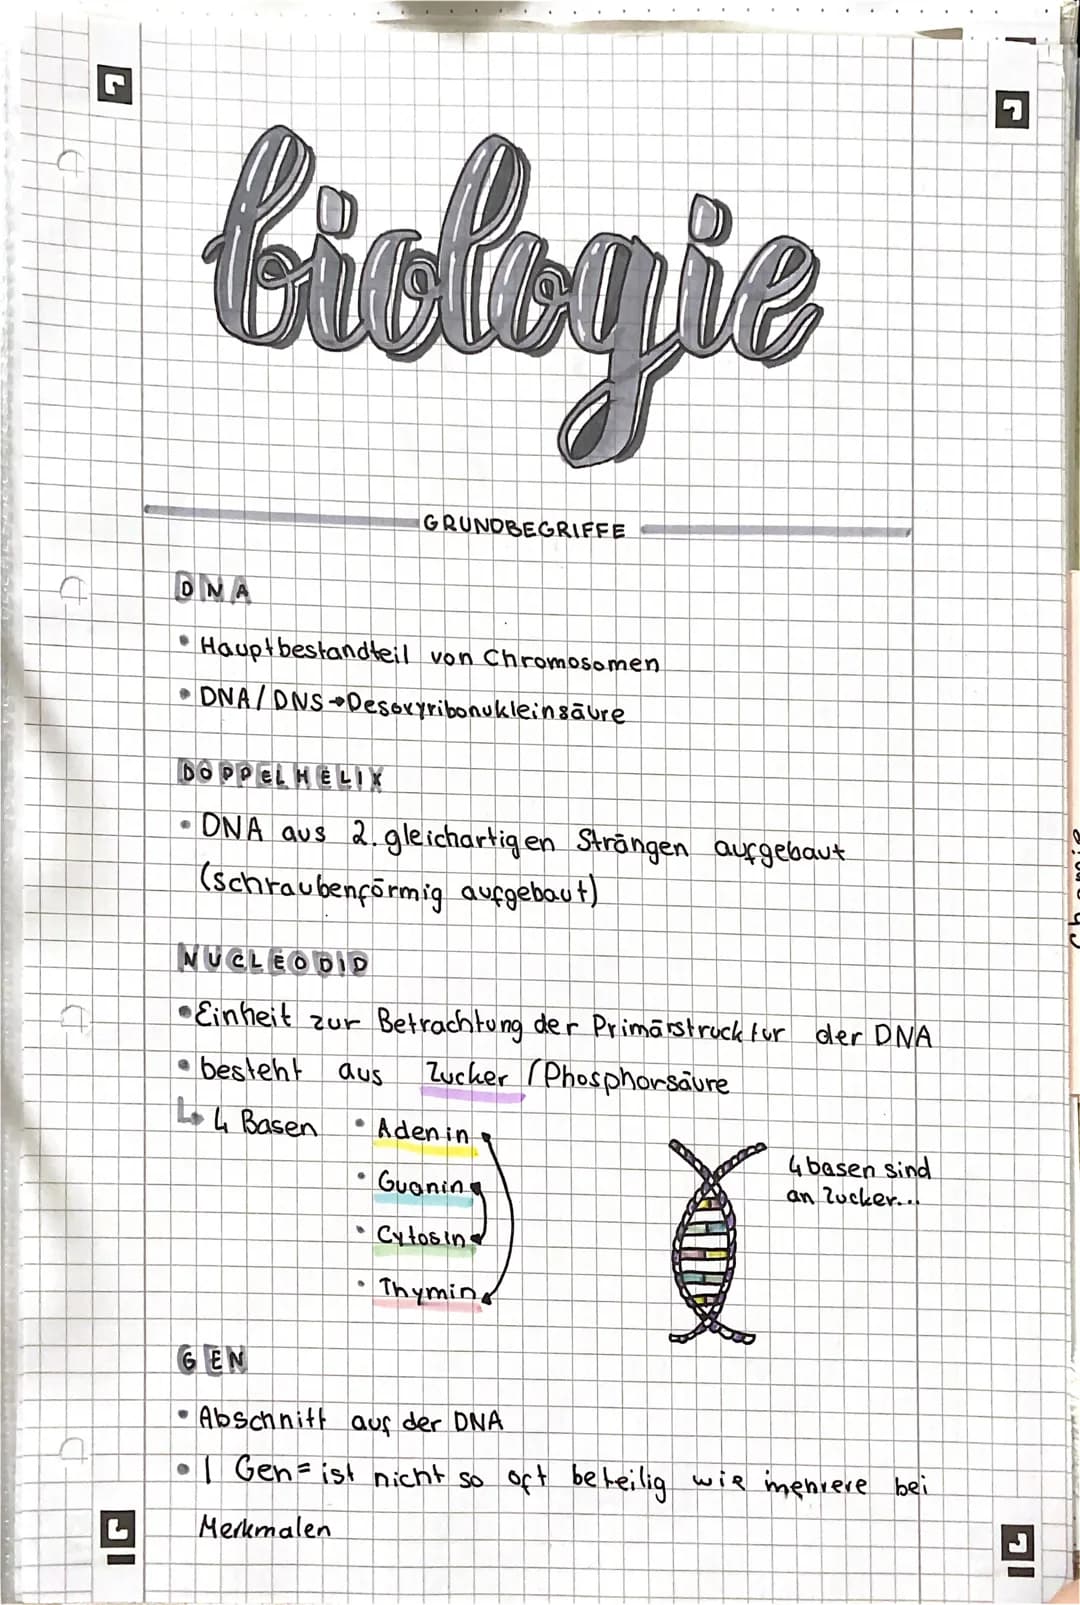 biologie
GRUNDBEGRIFFE
DNA
• Hauptbestandteil von Chromosomen
• DNA/DNS → Desoxyribonukleinsäure
DOPPELHELIX
• DNA aus 2. gleichartigen Strängen aufgebaut
(schraubenförmig aufgebaut)
NUCLEODID
• Einheit zur Betrachtung der Primärstrucktur der DNA
• besteht aus Zucker / Phosphorsäure
↳ 4 Basen • Adenin
• Guanin
• Cytosin
• Thymin
4 basen sind
an Zucker...
GEN
• Abschnitt auf der DNA
• 1 Gen = ist nicht so oft beteilig wie mehrere bei
Merkmalen